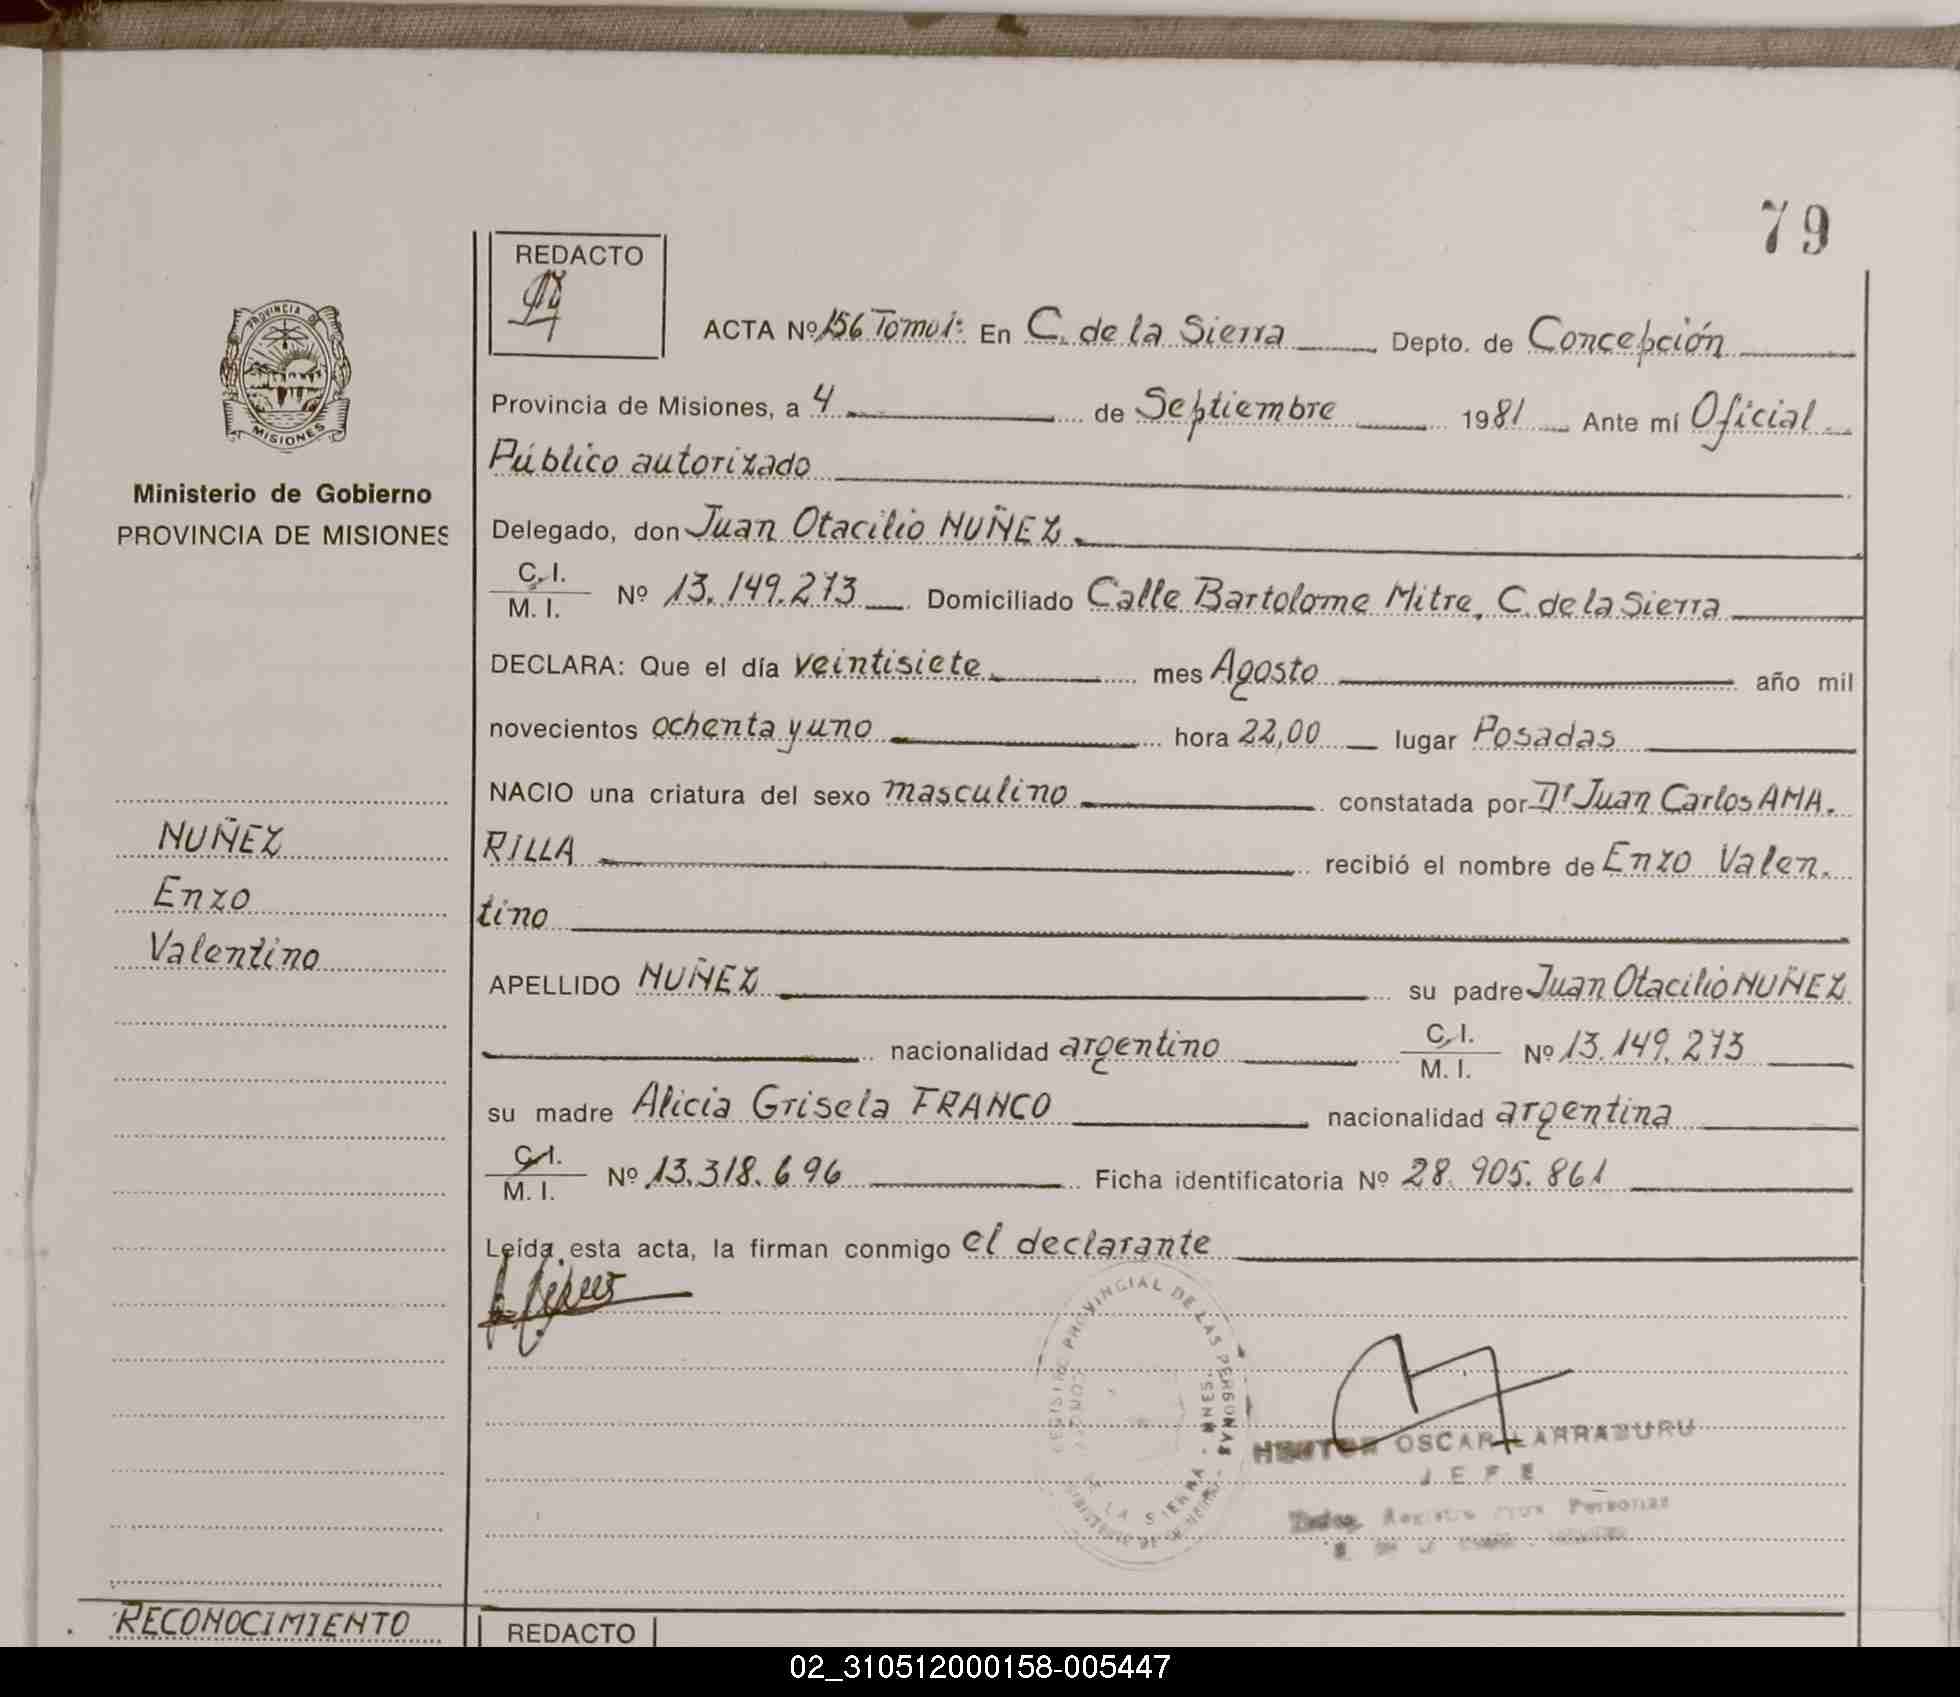 79
REDACTO
PROVINCIA DE
MISIONES
Ministerio de Gobierno
PROVINCIA DE MISIONES
ACTA Nº 156 Tomo 1º En C. de la Sierra Depto. de Concepción
Provincia de Misiones, a 4 de Septiembre 1981 Ante mí Oficial
Público autorizado
Delegado, don Juan Otacilio NUÑEZ
C.I. / M.I. Nº 13.149.273 Domiciliado Calle Bartolome Mitre, C. de la Sierra
DECLARA: Que el día veintisiete mes Agosto año mil
novecientos ochenta y uno hora 22,00 lugar Posadas
NACIO una criatura del sexo masculino constatada por Dr Juan Carlos AMA-
RILLA recibió el nombre de Enzo Valen-
tino
APELLIDO NUÑEZ su padre Juan Otacilio NUÑEZ
nacionalidad argentino C.I. / M.I. Nº 13.149.273
su madre Alicia Grisela FRANCO nacionalidad argentina
C.I. / M.I. Nº 13.318.696 Ficha identificatoria Nº 28.905.861
Leída esta acta, la firman conmigo el declarante
NUÑEZ
Enzo
Valentino
PROVINCIAL DE LAS PERSONAS
LA SIERRA - MNES.
OSCAR LARRABURU
JEFE
Personas
RECONOCIMIENTO
REDACTO
02_310512000158-005447